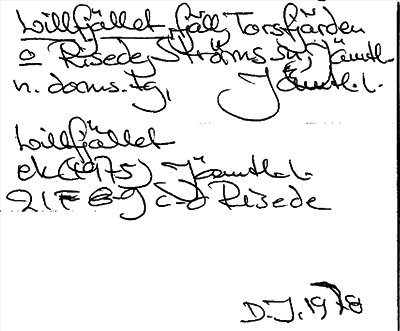 Lillfjället, fjäll, Torsfjärden
o Risede, Ströms sn, Jämtl.
n. doms.tg, Jämtl.l.
Lillfjället
ek (1975) Jämtl.l.
21F 8-9 c-d Risede
D.J. 1978